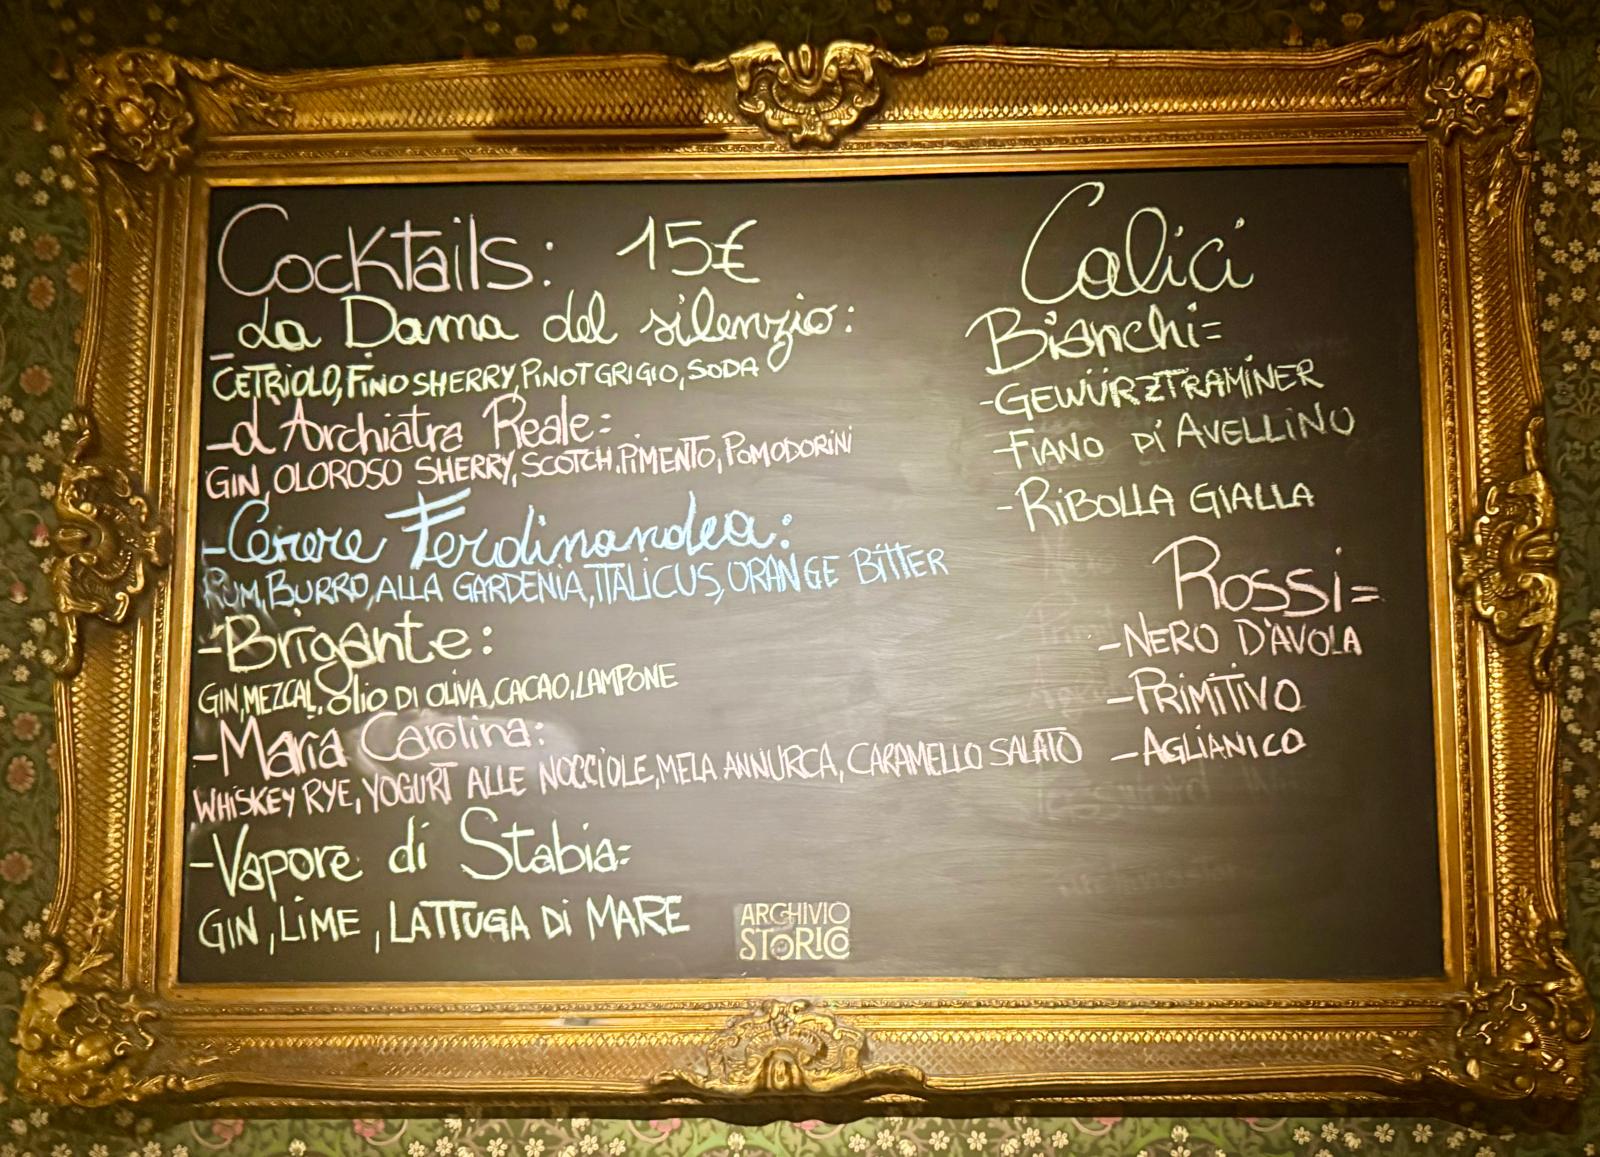 Cocktails: 15€
- La Dama del silenzio:
CETRIOLO, FINO SHERRY, PINOT GRIGIO, SODA
- d'Archiatra Reale:
GIN, OLOROSO SHERRY, SCOTCH, PIMENTO, POMODORINI
- Cerere Ferdinandea:
RUM, BURRO, ALLA GARDENIA, ITALICUS, ORANGE BITTER
- Brigante:
GIN, MEZCAL, olio DI OLIVA, CACAO, LAMPONE
- Maria Carolina:
WHISKEY RYE, YOGURT ALLE NOCCIOLE, MELA ANNURCA, CARAMELLO SALATO
- Vapore di Stabia:
GIN, LIME, LATTUGA Di MARE
ARCHIVIO
STORICO
Calici
Bianchi:
- GEWÜRZTRAMINER
- FIANO Di AVELLINO
- RIBOLLA GIALLA
Rossi:
- NERO D'AVOLA
- PRIMITIVO
- AGLIANICO